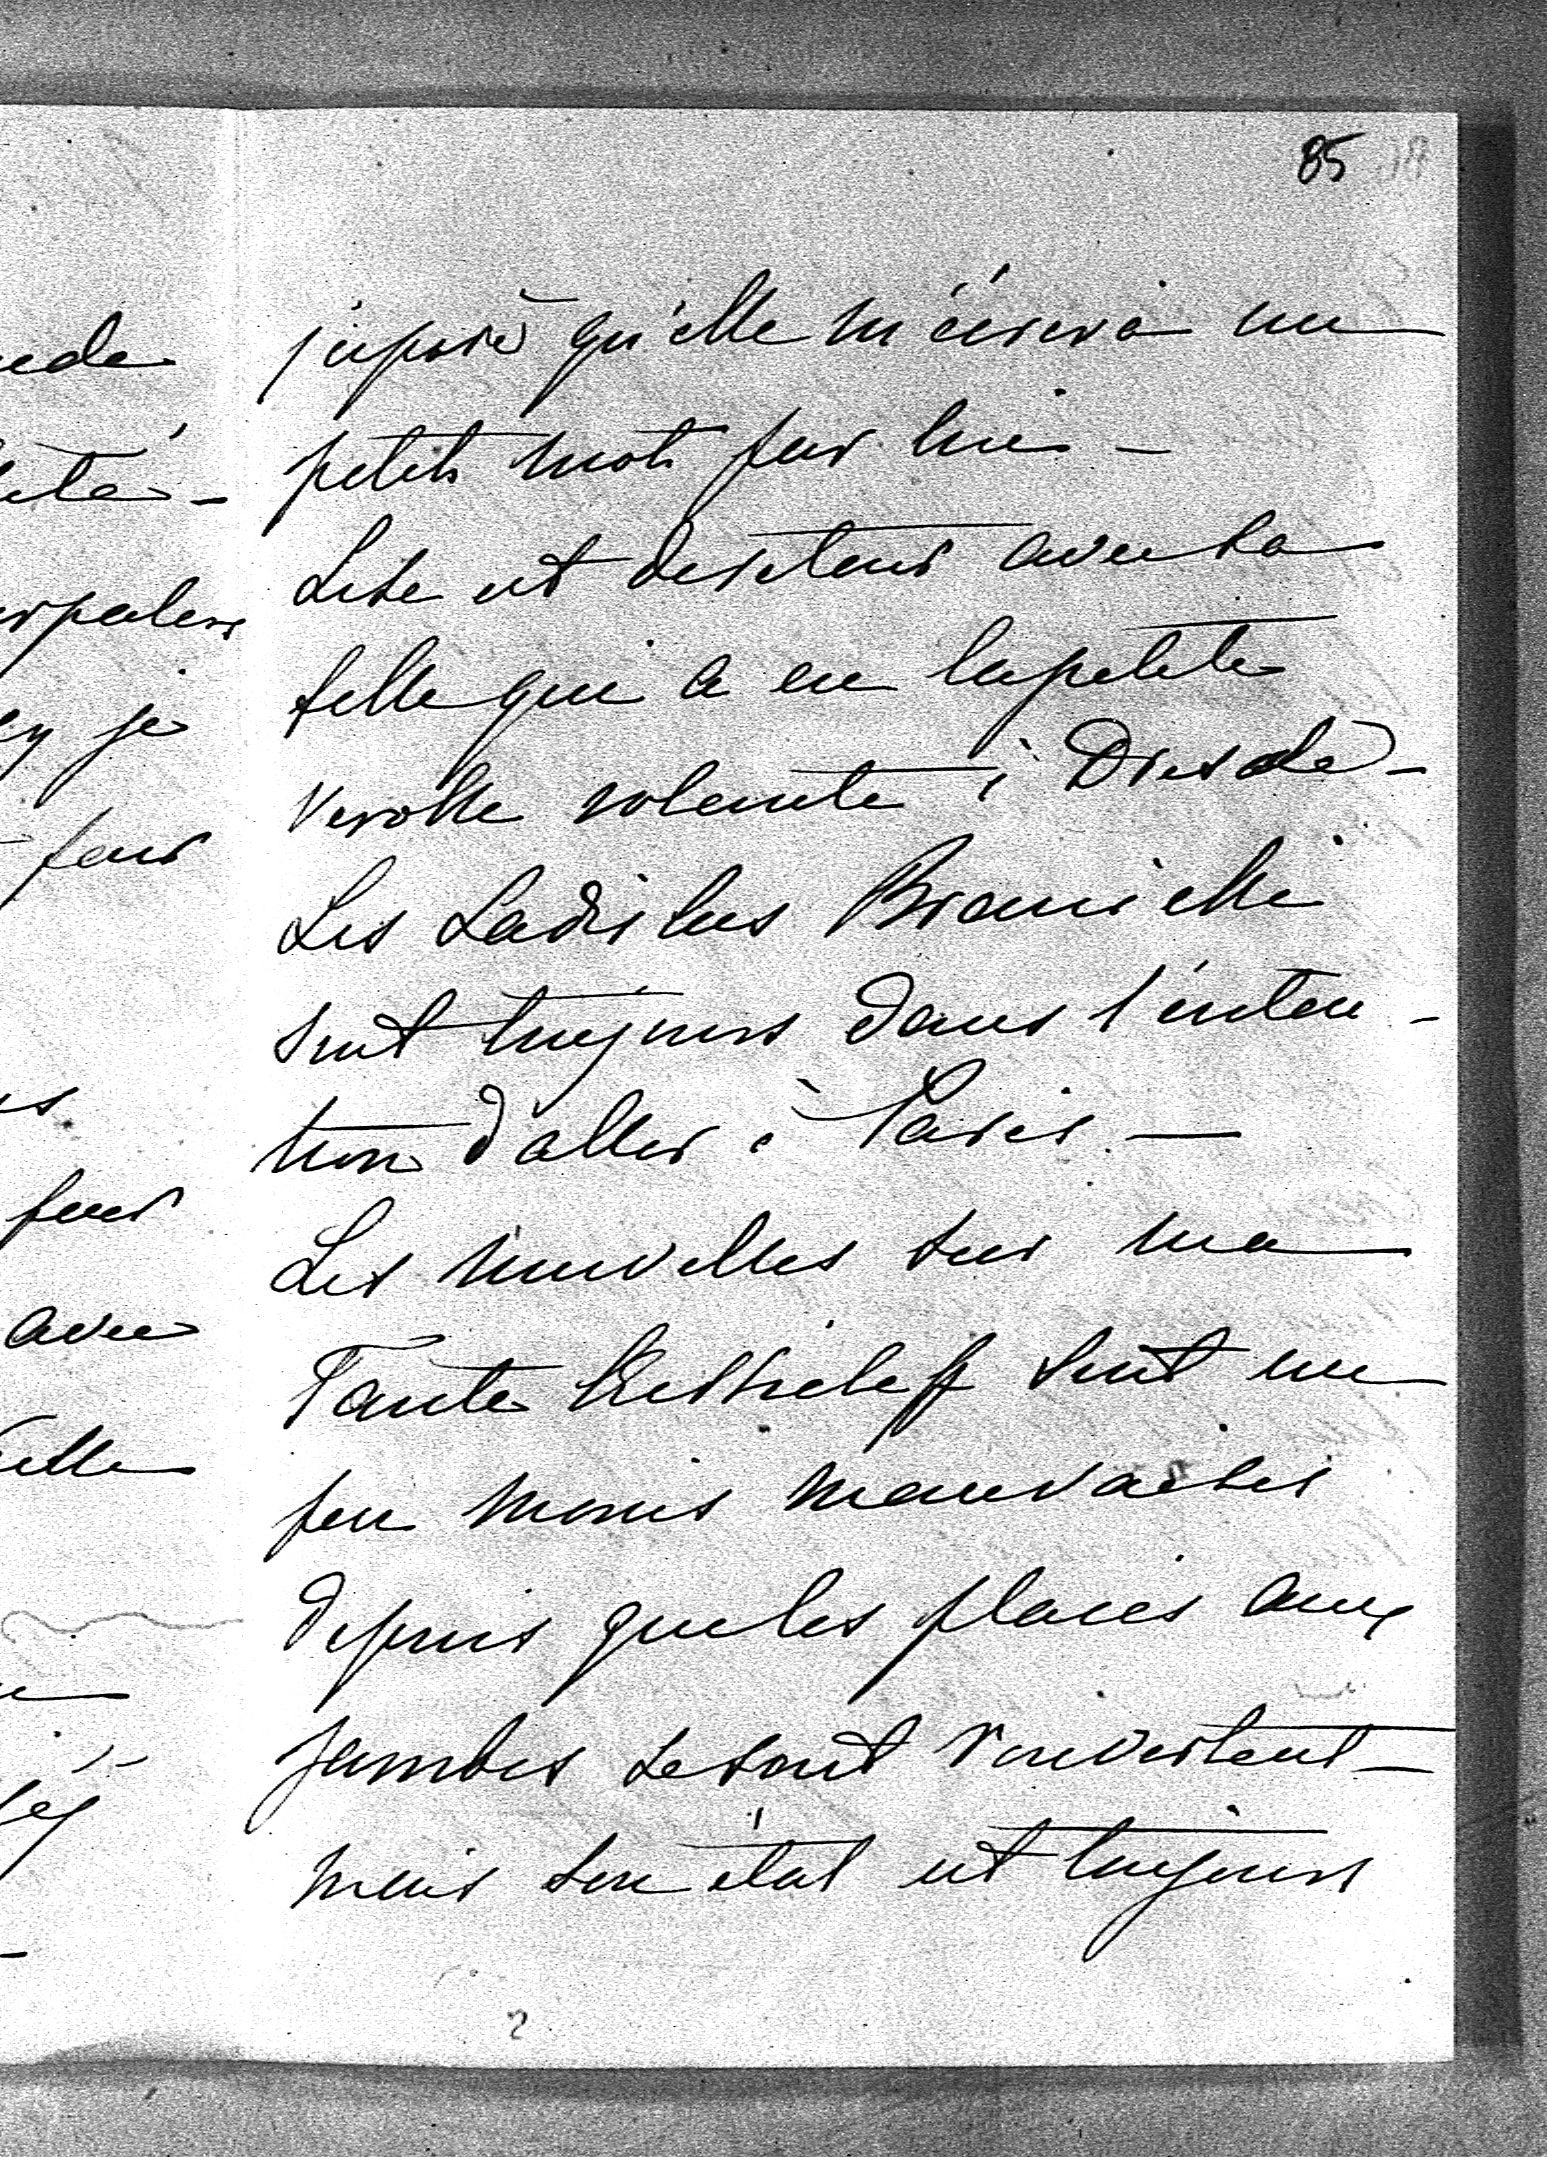 85
j'espère qu'elle m'écrira un
petit mot par lui –
Lise est de retour avec sa
fille qui a eu la petite
verolle volante à Dresde –
Les Ladislas Branicki
sont toujours dans l'inten-
tion d'aller à Paris –
Les nouvelles sur ma
Tante Kisseleff sont un
peu moins mauvaises
depuis que les plaies aux
jambes se sont rouvertent –
mais son état est toujours
2